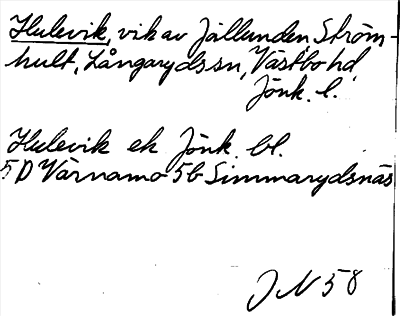 Hulevik, vik av Jällunden Ström-
hult, Långaryds sn, Västbo hd,
Jönk. l.
Hulevik ek Jönk. bl.
5D Värnamo 5b Simmarydsnäs
JN 58